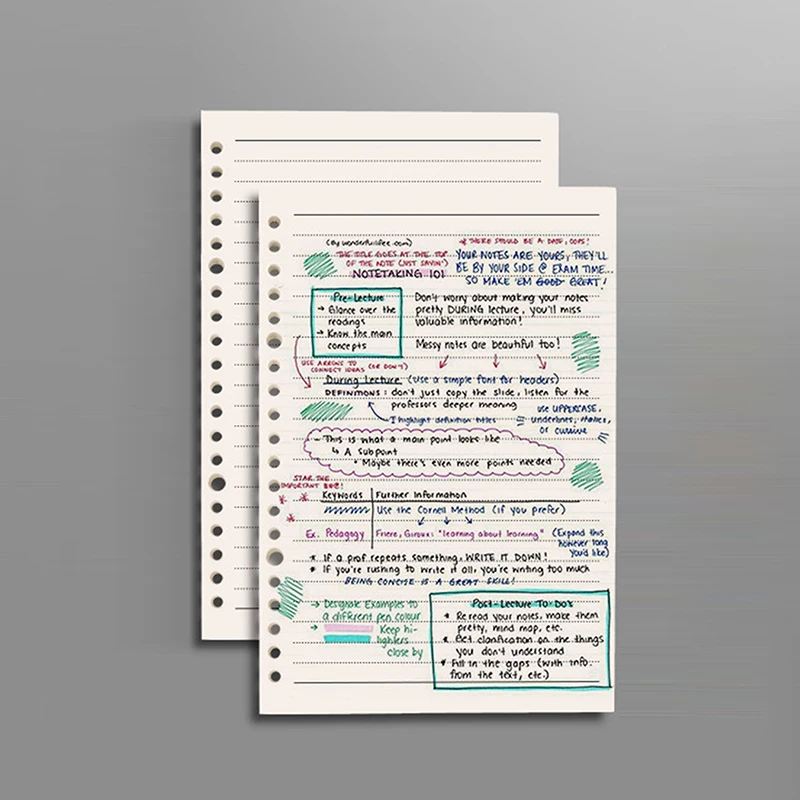 (By wonderfulifee.com)
* THERE SHOULD BE A DATE, OOPS!
THE TITLE GOES AT THE TOP
OF THE NOTE (JUST SAYIN')
NOTETAKING 101
YOUR NOTES ARE YOURS, THEY'LL
BE BY YOUR SIDE @ EXAM TIME...
SO MAKE 'EM GOOD GREAT!
Pre-Lecture
→ Glance over the
readings
→ Know the main
concepts
Don't worry about making your notes
pretty DURING lecture, you'll miss
valuable information!
Messy notes are beautiful too!
USE ARROWS TO
CONNECT IDEAS (OR DON'T)
During Lecture (Use a simple font for headers)
DEFINITIONS: don't just copy the slide, listen for the
professors deeper meaning
I highlight definition titles
use UPPERCASE,
underlines, italics,
or cursive
- This is what a main point looks like
↳ A subpoint
• Maybe there's even more points needed
STAR THE
IMPORTANT
Keywords
Further Information
Use the Cornell Method (if you prefer)
Ex. Pedagogy
Friere, Giroux: "learning about learning"
(Expand this
however long
you'd like)
* If a prof repeats something, WRITE IT DOWN!
* If you're rushing to write it all, you're writing too much
BEING CONCISE IS A GREAT SKILL!
→ Designate Examples to
a different pen colour
→ Keep hi-
lighters
close by
Post-Lecture To Do's
* Reread your notes, make them
pretty, mind map, etc.
* Get clarification on the things
you don't understand
* Fill in the gaps (with info.
from the text, etc.)